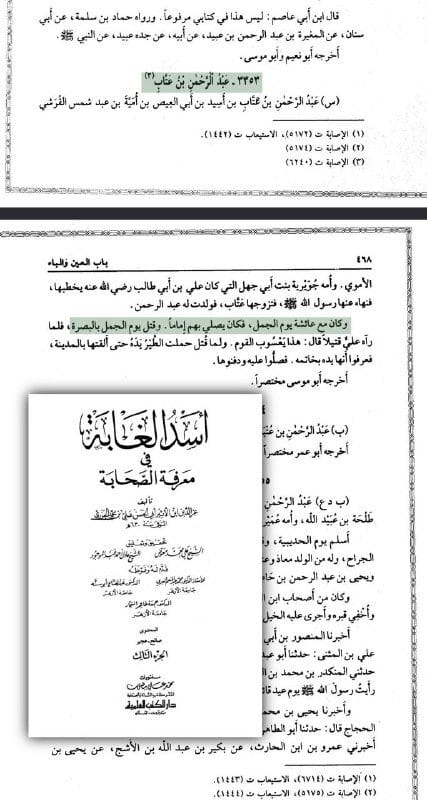 قال ابن أبي عاصم: ليس هذا في كتابي مرفوعاً. ورواه حماد بن سلمة، عن أبي
سنان، عن المغيرة بن عبد الرحمن بن عبيد، عن أبيه، عن جده عبيد، عن النبي ﷺ.
أخرجه أبو نعيم وأبو موسى.
٣٣٥٣ - عَبْدُ الرَّحْمٰنِ بْنُ عَتَّابٍ (٣)
(س) عَبْدُ الرَّحْمٰنِ بنُ عَتَّابِ بن أَسِيد بن أبي العِيص بن أُمَيَّة بن عبد شمس القُرَشي
(١) الإصابة ت (٥١٧٢)، الاستيعاب ت (١٤٤٢).
(٢) الإصابة ت (٥١٧٤)
(٣) الإصابة ت (٦٢٤٠)
٤٦٨
باب العين والباء
الأموي. وأمه جُوَيْرية بنت أبي جهل التي كان علي بن أبي طالب رضي الله عنه يخطبها،
فنهاه عنها رسول الله ﷺ، فتزوجها عتَّاب، فولدت له عبد الرحمن.
وكان مع عائشة يوم الجمل، فكان يصلي بهم إماماً. وقتل يوم الجمل بالبصرة، فلما
رآه عليٌّ قتيلاً قال: هذا يَعْسُوب القوم. ولما قُتل حملت الطَّيْرُ يَدَهُ حتى ألقتها بالمدينة،
فعرفوا أنها يده بخاتمه. فصلُّوا عليه ودفنوها.
أخرجه أبو موسى مختصراً.
(ب) عَبْدُ الرَّحْمٰنِ بن
أخرجه أبو عمر مختصراً
(ب د ع) عَبْدُ الرَّحْمٰنِ
طَلْحَة بن عُبَيْد الله، وأمه عُمَيْر
أسلم يوم الحديبية، وق
الجراح، وله من الولد معاذ وع
ويحيى بن عبد الرحمن بن حا
وكان من أصحاب ابن ال
وأُخْفِي قبره وأجرى عليه الخيل
أخبرنا المنصور بن أبي
علي بن المثنى: حدثنا أبو عبد
حدثني المنكدر بن محمد بن
رأيتُ رسولَ الله ﷺ يوم عيد قائ
وأخبرنا يحيى بن محمو
الحجاج قال: حدثنا أبو الطاهر
أخبرني عمرو بن ابن الحارث، عن بكير بن عبد الله بن الأشج، عن يحيى بن
(١) الإصابة ت (٦٧١٤)، الاستيعاب ت (١٤٤٣).
(٢) الإصابة ت (٥١٧٥)، الاستيعاب ت (١٤٤٤).
أسد الغابة
في
معرفة الصحابة
تأليف
المحتوى
الجزء الثالث
دار الكتب العلمية